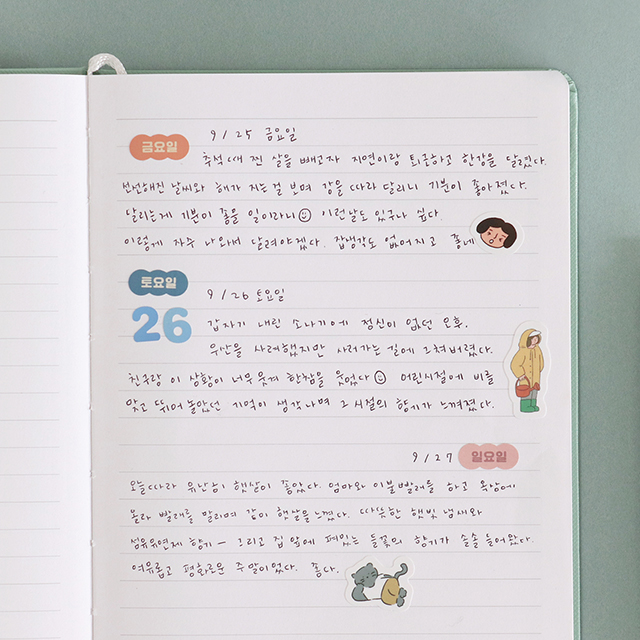 금요일 9/25 금요일
추석 때 찐 살을 빼고자 지연이랑 퇴근하고 한강을 달렸다.
선선해진 날씨와 해가 지는 걸 보며 강을 따라 달리니 기분이 좋아졌다.
달리는게 기분이 좋을 일이라니☺ 이런날도 있구나 싶다.
이렇게 자주 나와서 달려야겠다. 잡생각도 없어지고 좋네
토요일 9/26 토요일
26 갑자기 내린 소나기에 정신이 없던 오후.
우산을 사려했지만 사러가는 길에 그쳐버렸다.
친구랑 이 상황이 너무 웃겨 한참을 웃었다☺ 어린시절에 비를
맞고 뛰어 놀았던 기억이 생각나며 그 시절의 향기가 느껴졌다.
9/27 일요일
오늘따라 유난히 햇살이 좋았다. 엄마와 이불빨래를 하고 옥상에
올라 빨래를 말리며 같이 햇살을 느꼈다. 따뜻한 햇빛 냄새와
섬유유연제 향기 — 그리고 집 앞에 펴있는 들꽃의 향기가 솔솔 들어왔다.
여유롭고 평화로운 주말이었다. 좋다.